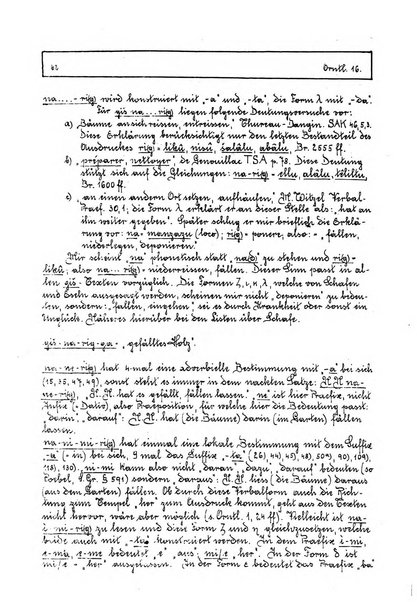 62 Orntl. 16.
na....-ri(g) wird konstruiert mit „-a" und „-ta", die Form λ mit „-da".
Für giš na...-ri(g) liegen folgende Deutungsversuche vor:
a) „Bäume ansichreissen, entreissen," Thureau-Dangin. SAK 46,5,3.
Diese Erklärung berücksichtigt nur den letzten Bestandteil des
Ausdruckes ri(g) = likû, nisû, šalālu, abālu, Br. 2555 ff.
b) „préparer, nettoyer", de Genouillac TSA p. 78. Diese Deutung
stützt sich auf die Gleichungen: na-ri(g) = ellu, abālu, têliltu,
Br. 1600 ff.
c) „an einen andern Ort setzen, aufhäufen," M. Witzel Verbal-
Praef. 30,1; die Form λ erklärt er an dieser Stelle als: „hat an
ihn weiter gegeben". Später schlug er mir brieflich die Erklä-
rung vor: na = manzazu (loco); ri(g) = ponere, also: = „fällen,
niederlegen, deponieren".
Mir scheint „na" phonetisch statt na(d) zu stehen und ri(g) =
likû; also na...ri(g) = niederreissen, fällen. Dieser Sinn passt in al-
len giš-Texten vorzüglich. Die Formen ζ, ι, κ, λ, welche von Schafen
und Eseln ausgesagt werden, scheinen mir nicht „deponieren" zu bedeu-
ten, sondern: „fallen, eingehen", sei es durch Krankheit oder sonst ein
Unglück. Näheres hierüber bei den Listen über Schafe.
giš-na-rig-ga = „gefälltes Holz".
na-ne-ri(g) hat 4-mal eine adverbielle Bestimmung mit „-a" bei sich
(18, 35, 47, 49), sonst steht es immer in dem nackten Satze: N.N. na-
ne-ri(g), „N.N. hat es gefällt, fällen lassen". „ne" ist hier Praefix, nicht
Infix (= Dativ), also Praeposition, für welche hier die Bedeutung passt:
„darin", „darauf": N.N. hat (die Bäume) darin (im Garten) fällen
lassen.
na-ni-ri(g) hat einmal eine lokale Bestimmung mit dem Suffix
„-a" (= in) bei sich, 9 mal das Suffix „-ta" (26), 44), 45), 48), 50%), 90), 109),
118), 130). ni-mi kann also nicht „daran", „dazu", „darauf" bedeuten (so
Poebel, S.Gr. § 591) sondern „daraus": N.N. liess (die Bäume) daraus
(aus dem Garten) fällen. Ob durch diese Verbalform auch die Rich-
tung zum Tempel „her" zum Ausdruck kommt, geht aus den Texten
nicht hervor, wäre aber möglich (s. Orntl. 1, 24 ff). Vielleicht ist na-
i-ni-ri(g) zu lesen und diese Form ζ und η gleichzusetzen, welche
beide mit „-ta" konstruiert werden. In den Praefixformen i-mi,
e-me, i-me bedeutet „e" „aus"; mi/e „her". In der Form δ ist
mi/e = „her" ausgelassen. In der Form ε bedeutet das Praefix „ba"